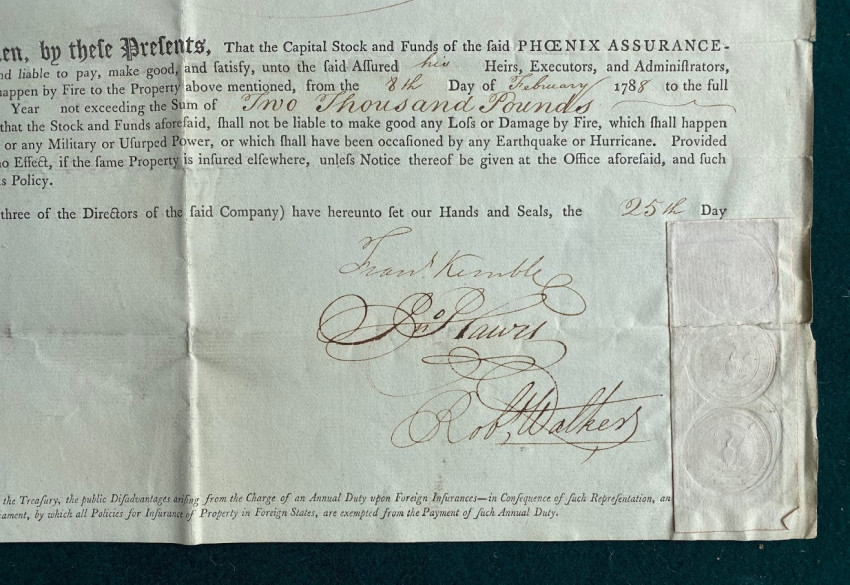 en, by theſe Preſents, That the Capital Stock and Funds of the ſaid PHŒNIX ASSURANCE-
nd liable to pay, make good, and ſatisfy, unto the ſaid Aſſured his Heirs, Executors, and Adminiſtrators,
happen by Fire to the Property above mentioned, from the 8th Day of February 1788 to the full
Year not exceeding the Sum of Two Thousand Pounds
that the Stock and Funds aforeſaid, ſhall not be liable to make good any Loſs or Damage by Fire, which ſhall happen
or any Military or Uſurped Power, or which ſhall have been occaſioned by any Earthquake or Hurricane. Provided
no Effect, if the ſame Property is inſured elſewhere, unleſs Notice thereof be given at the Office aforeſaid, and ſuch
s Policy.
three of the Directors of the ſaid Company) have hereunto ſet our Hands and Seals, the 25th Day
Fran.s Kemble
Jn.o
Rob.t Walker
the Treaſury, the public Diſadvantages ariſing from the Charge of an Annual Duty upon Foreign Inſurances—in Conſequence of ſuch Repreſentation, an
iament, by which all Policies for Inſurance of Property in Foreign States, are exempted from the Payment of ſuch Annual Duty.